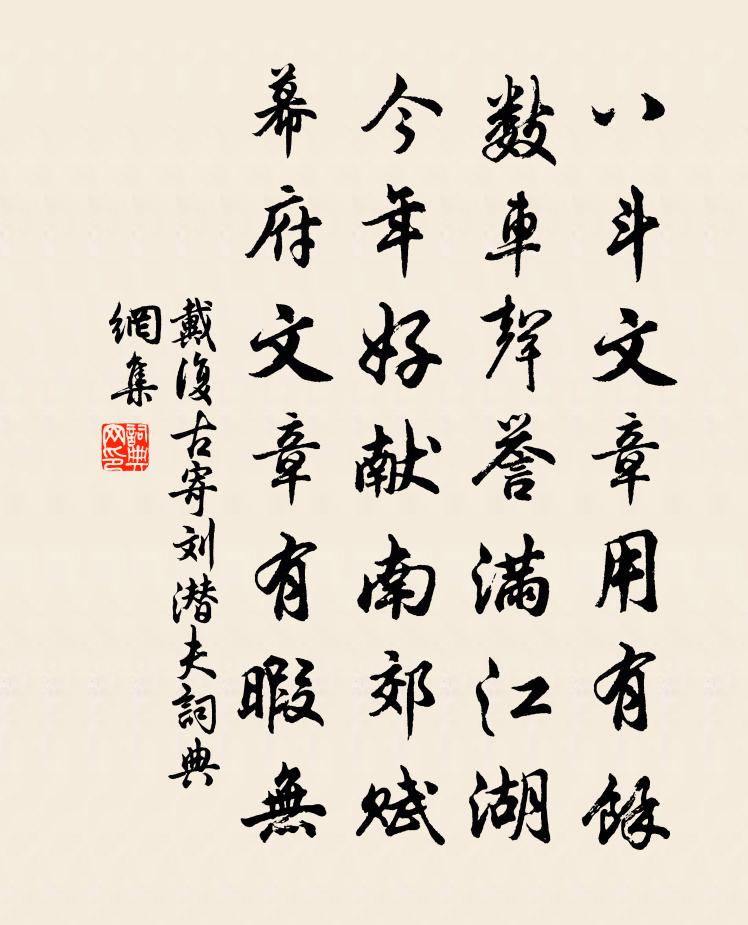 八斗文章用有餘
数車聲譽满江湖
今年好献南郊赋
幕府文章有暇無
戴復古寄刘潜夫詞典
網集
詞典
网印